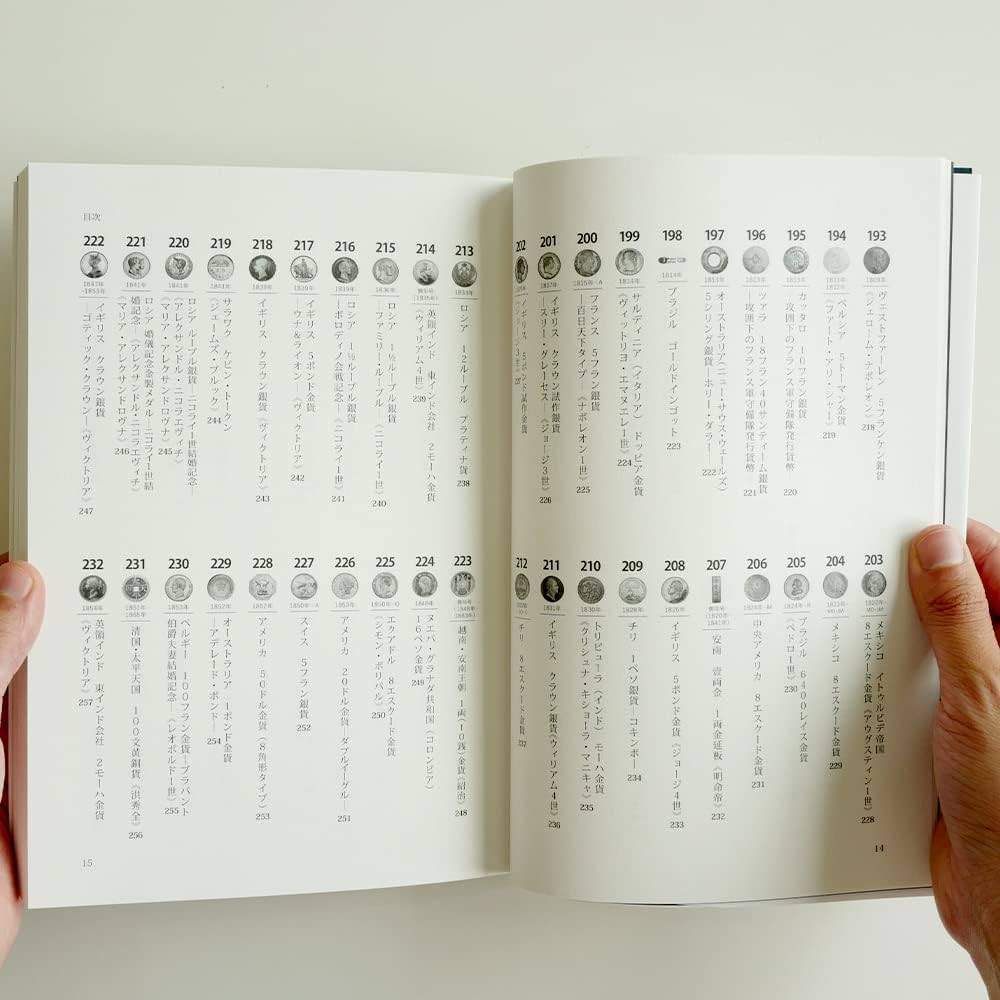 193
1809年
ヴェストファーレン 5フランケン銀貨
《ジェローム・ナポレオン》 218
194
ペルシア 5トーマン金貨
《ファット・アリ・シャー》 219
195
1813年
カッタロ 10フラン銀貨
—攻囲下のフランス軍守備隊発行貨幣— 220
196
1813年
ツァラ 18フラン40サンティーム銀貨
—攻囲下のフランス軍守備隊発行貨幣— 221
197
1813年
オーストラリア《ニュー・サウス・ウェールズ》
5シリング銀貨—ホリー・ダラー— 222
198
1814年
ブラジル ゴールドインゴット 223
199
1814年
サルディニア(イタリア) ドッピア金貨
《ヴィットリヨ・エマヌエレ1世》 224
200
1815年-A
フランス 5フラン銀貨
—百日天下タイプ—《ナポレオン1世》 225
201
1817年
イギリス クラウン試作銀貨
—スリー・グレーセス—《ジョージ3世》 226
202
イギリス 5ポンド試作金貨
203
1822年
MO-JM
メキシコ イトゥルビデ帝国
8エスクード金貨《アウグスティン1世》 228
204
メキシコ 8エスクード金貨 229
205
1824年-R
ブラジル 6400レイス金貨
《ペドロ1世》 230
206
中央アメリカ 8エスクード金貨 231
207
無銘号
(1820年-
1841年)
安南 壹両金 1両金延板《明命帝》 232
208
1826年
イギリス 5ポンド金貨《ジョージ4世》 233
209
1828年
チリ 1ペソ銀貨—コキンボ— 234
210
1830年
トリピューラ(インド) モーハ金貨
《クリシュナ・キショーラ・マニキャ》 235
211
1831年
イギリス クラウン銀貨《ウィリアム4世》 236
212
チリ 8エスクード金貨 237
14
目次
213
1833年
ロシア 12ルーブル プラチナ貨 238
214
(1835年)
英領インド 東インド会社 2モーハ金貨
《ウィリアム4世》 239
215
1836年
ロシア 1½ルーブル銀貨
—ファミリー・ルーブル—《ニコライ1世》 240
216
1839年
ロシア 1½ルーブル銀貨
—ボロディノ会戦記念—《ニコライ1世》 241
217
1839年
イギリス 5ポンド金貨
—ウナ&ライオン—《ヴィクトリア》 242
218
1839年
イギリス クラウン銀貨《ヴィクトリア》 243
219
1841年
サラワク ケピン・トークン
《ジェームズ・ブルック》 244
220
1841年
ロシア ルーブル銀貨—ニコライ1世結婚記念—
《アレクサンドル・ニコラエヴィチ》
《マリア・アレクサンドロヴナ》 245
221
1841年
ロシア 婚儀記念金製メダル—ニコライ1世結
婚記念—《アレクサンドル・ニコラエヴィチ》
《マリア・アレクサンドロヴナ》 246
222
1847年
-1853年
イギリス クラウン銀貨
—ゴティック・クラウン—《ヴィクトリア》 247
223
(1848年-
1883年)
越南・安南王朝 1両(10銭)金貨《紹治》 248
224
1848年
ヌエバ・グラナダ共和国(コロンビア)
16ペソ金貨 249
225
1850年-Q
エクアドル 8エスクード金貨
《シモン・ボリバル》 250
226
1850年
アメリカ 20ドル金貨—ダブルイーグル— 251
227
1850年-A
スイス 5フラン銀貨 252
228
1852年
アメリカ 50ドル金貨(8角形タイプ) 253
229
1852年
オーストラリア 1ポンド金貨
—アデレード・ポンド— 254
230
1853年
ベルギー 100フラン金貨—ブラバント
伯爵夫妻結婚記念—《レオポルド1世》 255
231
清国・太平天国 100文黄銅貨《洪秀全》 256
232
1854年
英領インド 東インド会社 2モーハ金貨
《ヴィクトリア》 257
15